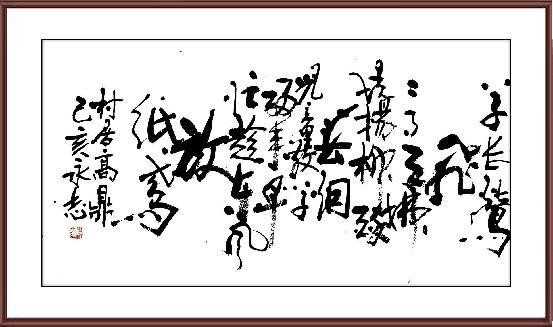 草长莺
飞
二月天拂
堤杨柳醉
春烟
儿童散学
归来早
忙趁东风
放
纸鸢
村居高鼎
己亥永志